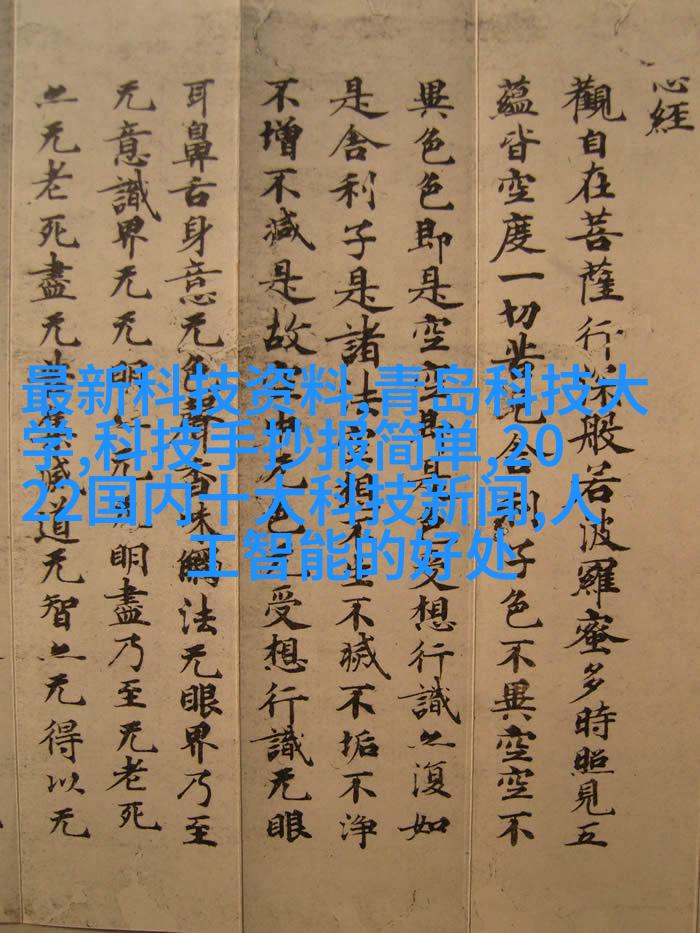 心經
觀自在菩薩行深般若波羅蜜多時照見五
蘊皆空度一切苦厄舍利子色不異空空不
異色色即是空空即是色受想行識亦復如
是舍利子是諸法空相不生不滅不垢不淨
不增不減是故空中无色无受想行識无眼
耳鼻舌身意无色聲香味觸法无眼界乃至
无意識界无无明亦无无明盡乃至无老死
亦无老死盡无苦集滅道无智亦无得以无
最新科技资料,青岛科技大
学,科技手抄报简单,20
22国内十大科技新闻,人
工智能的好处